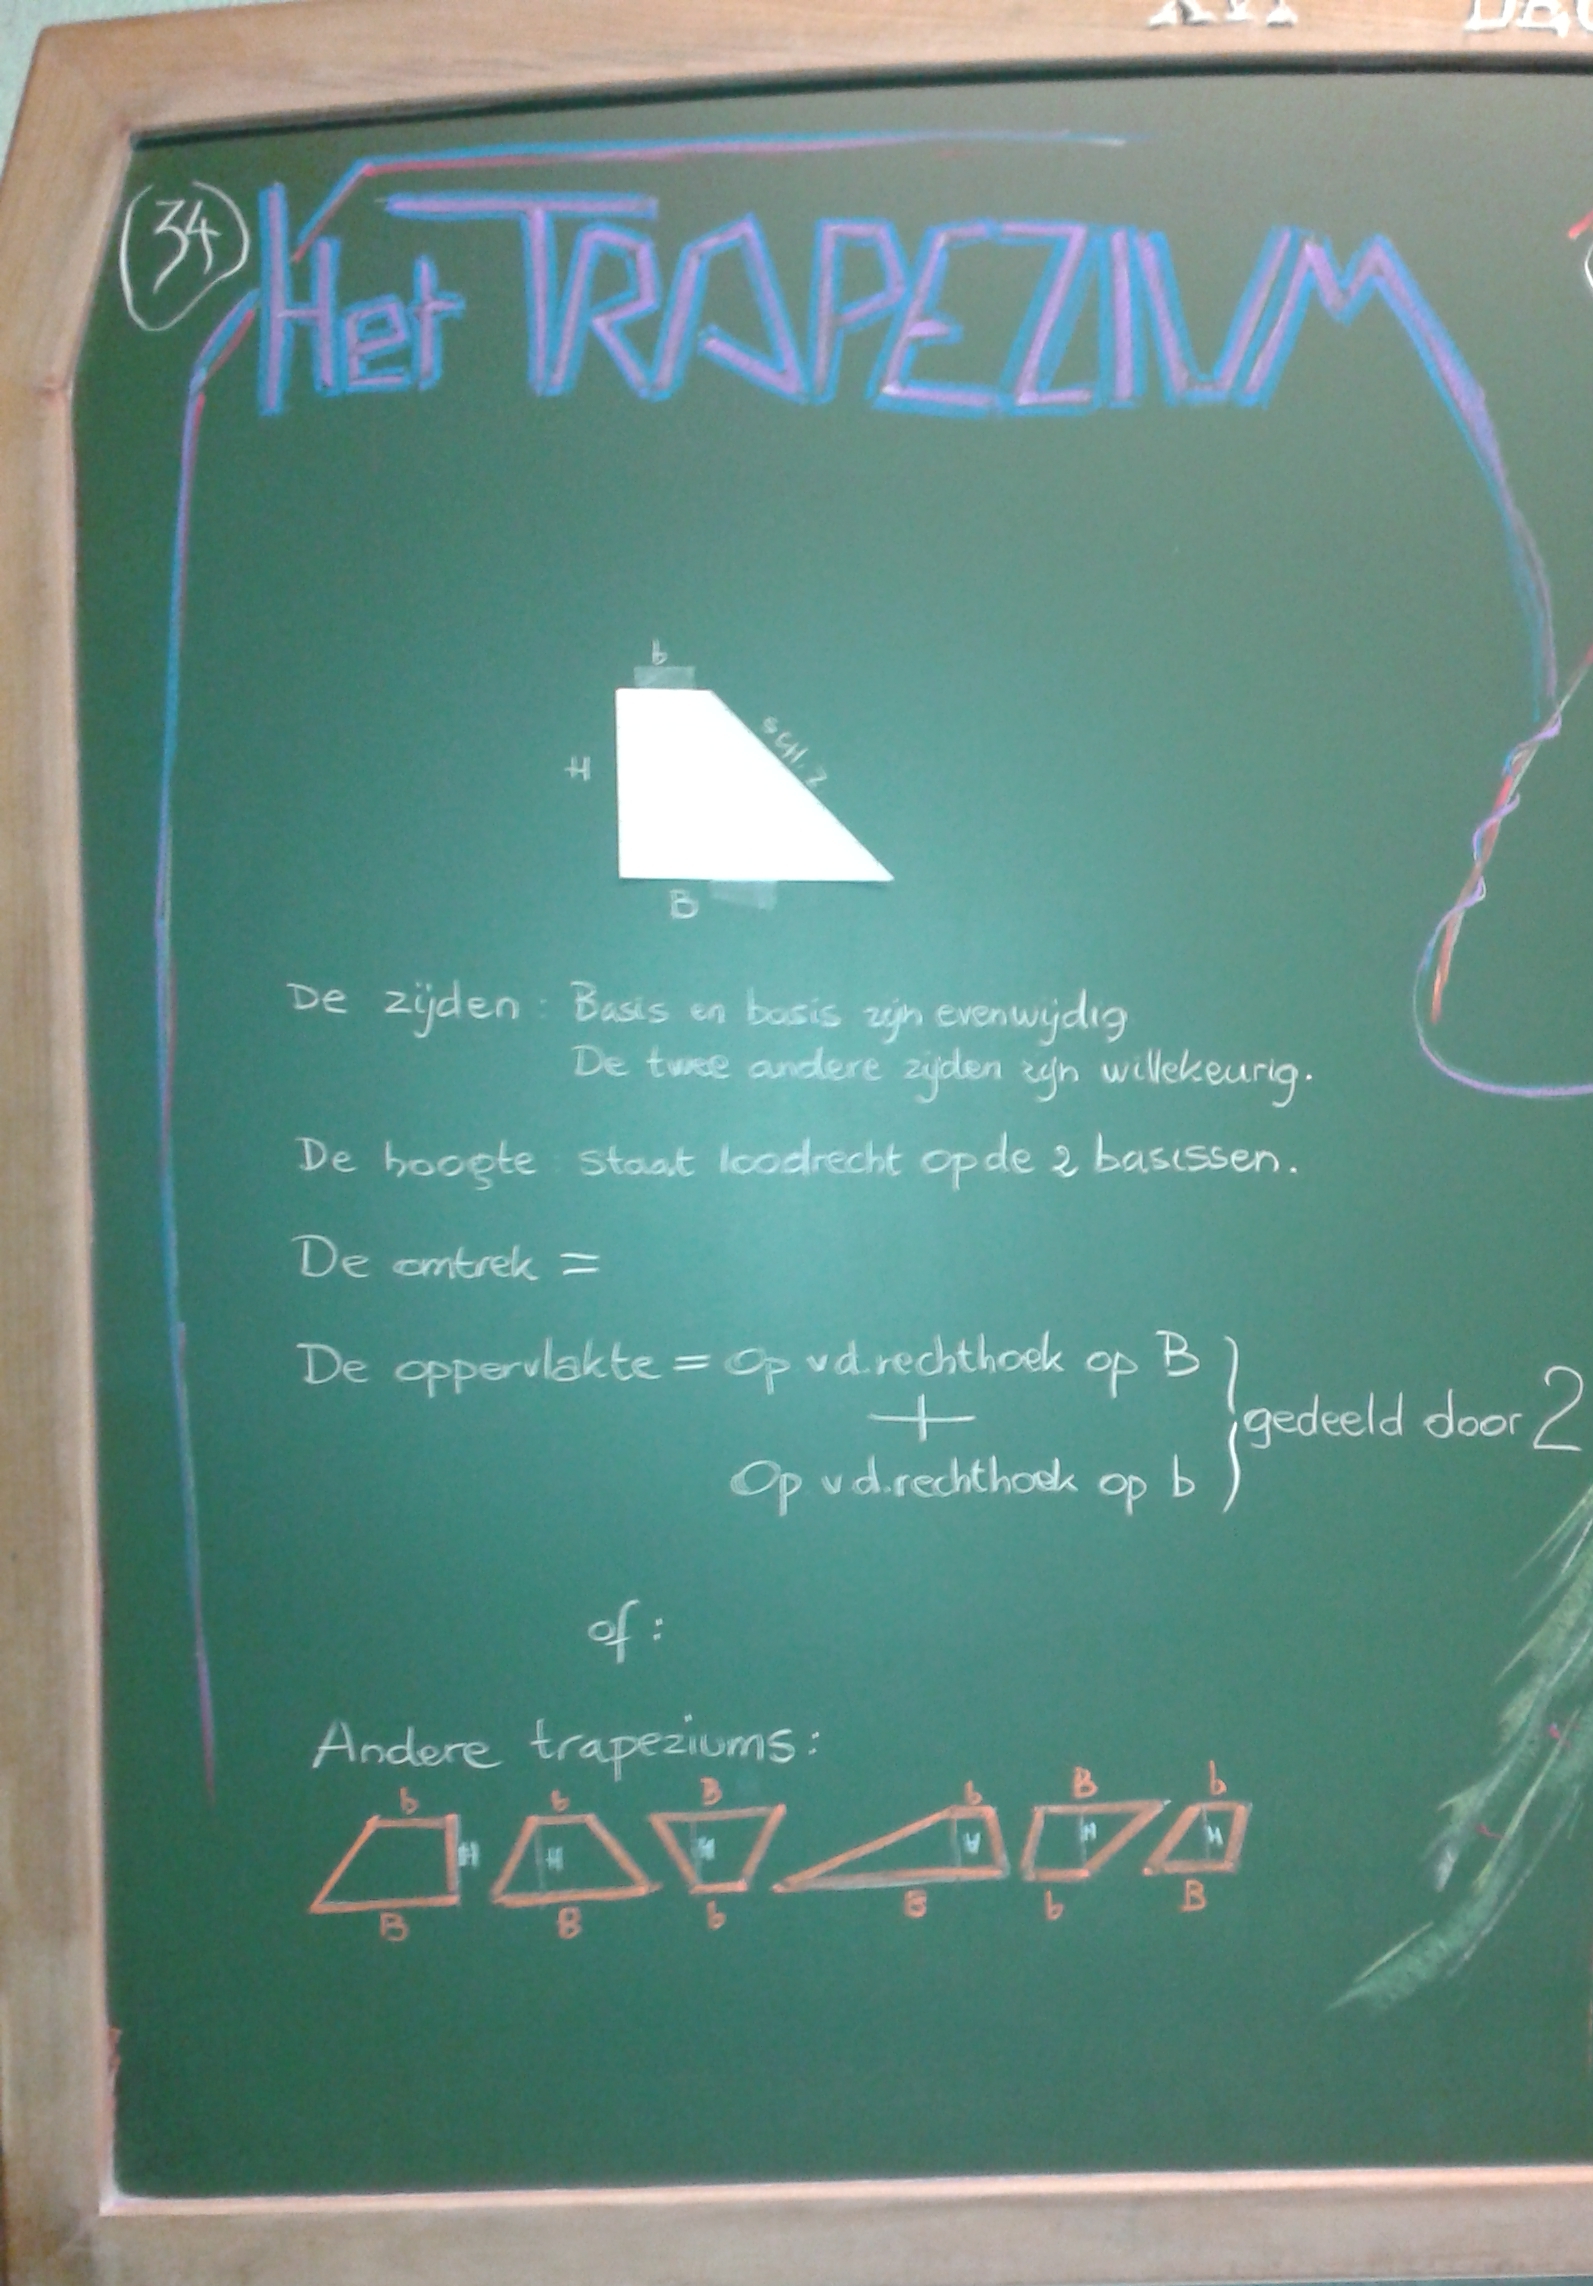 34
Het TRAPEZIUM
b
H
SCH.Z
B
De zijden : Basis en basis zijn evenwijdig
De twee andere zijden zijn willekeurig.
De hoogte : staat loodrecht op de 2 basissen.
De omtrek =
De oppervlakte = Op vd. rechthoek op B
+
Op vd. rechthoek op b
} gedeeld door 2
of :
Andere trapeziums :
b b B b B b
H H H H H H
B B b B b B